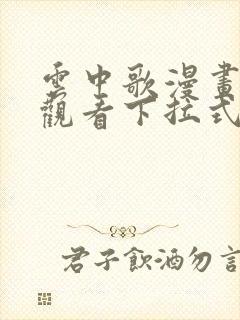 雲中歌漫畫
觀看下拉式
君子飲酒勿言